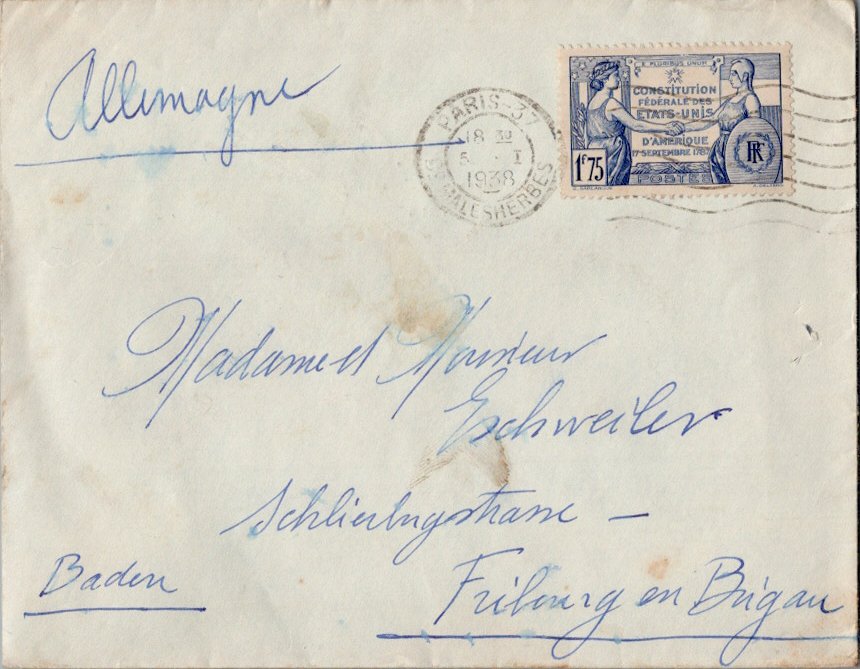 Allemagne
PARIS-37
18 30
5 - I
1938
BD MALESHERBES
E PLURIBUS UNUM
CONSTITUTION
FÉDÉRALE DES
ETATS-UNIS
D'AMÉRIQUE
17 SEPTEMBRE 1787
1F75
POSTES
RF
Madame et Monsieur
Eschweiler
Baden
Fribourg en Brisgau